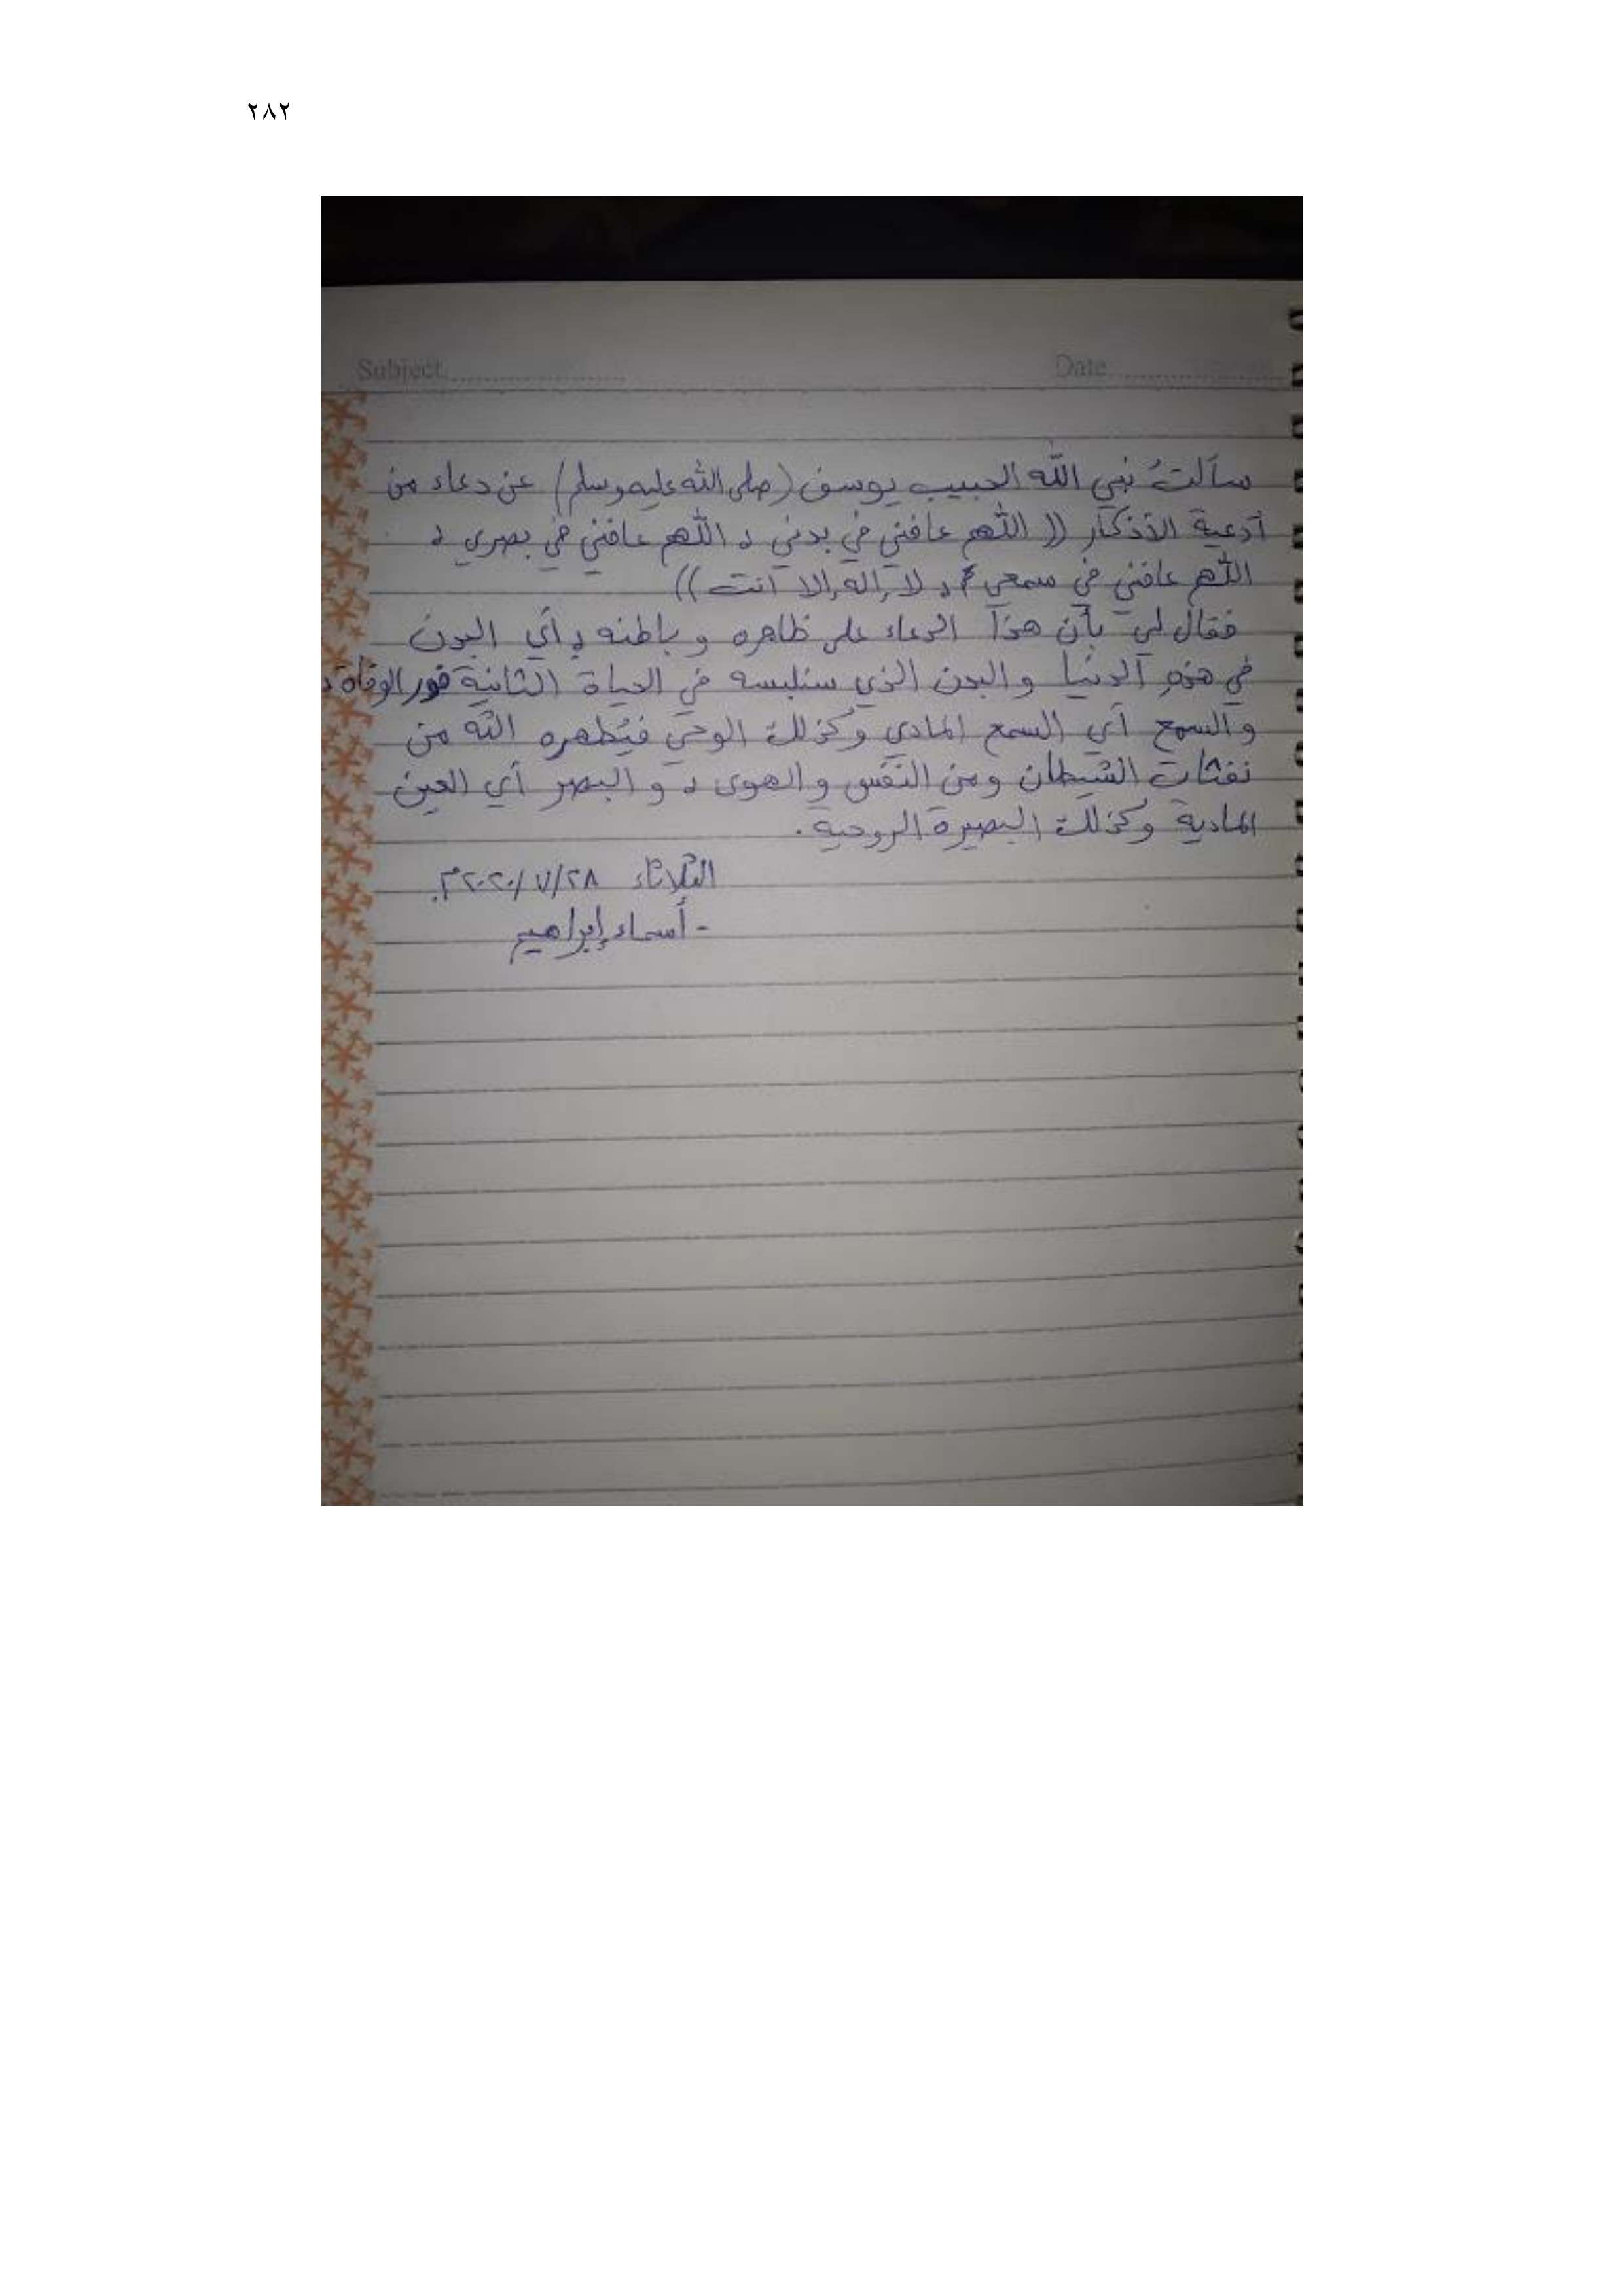 ٢٨٢
Subject
Date
سألتُ نبي الله الحبيب يوسف (صلى الله عليه وسلم) عن دعاء من
أدعية الأذكار (( اللهم عافني في بدني ، اللهم عافني في بصري ،
اللهم عافني في سمعي ، لا إله إلا أنت ))
فقال لي بأن هذا الدعاء على ظاهره و باطنه ، أي البدن
في هذهِ الدنيا والبدن الذي سنلبسه في الحياة الثانية فور الوفاة ،
والسمع أي السمع المادي وكذلك الوحي فيُطهره الله من
نفثات الشيطان ومن النفس والهوى ، و البصر أي العين
المادية وكذلك البصيرة الروحية .
الثلاثاء ٢٨/٧/٢٠٢٠م.
- أسماء إبراهيم